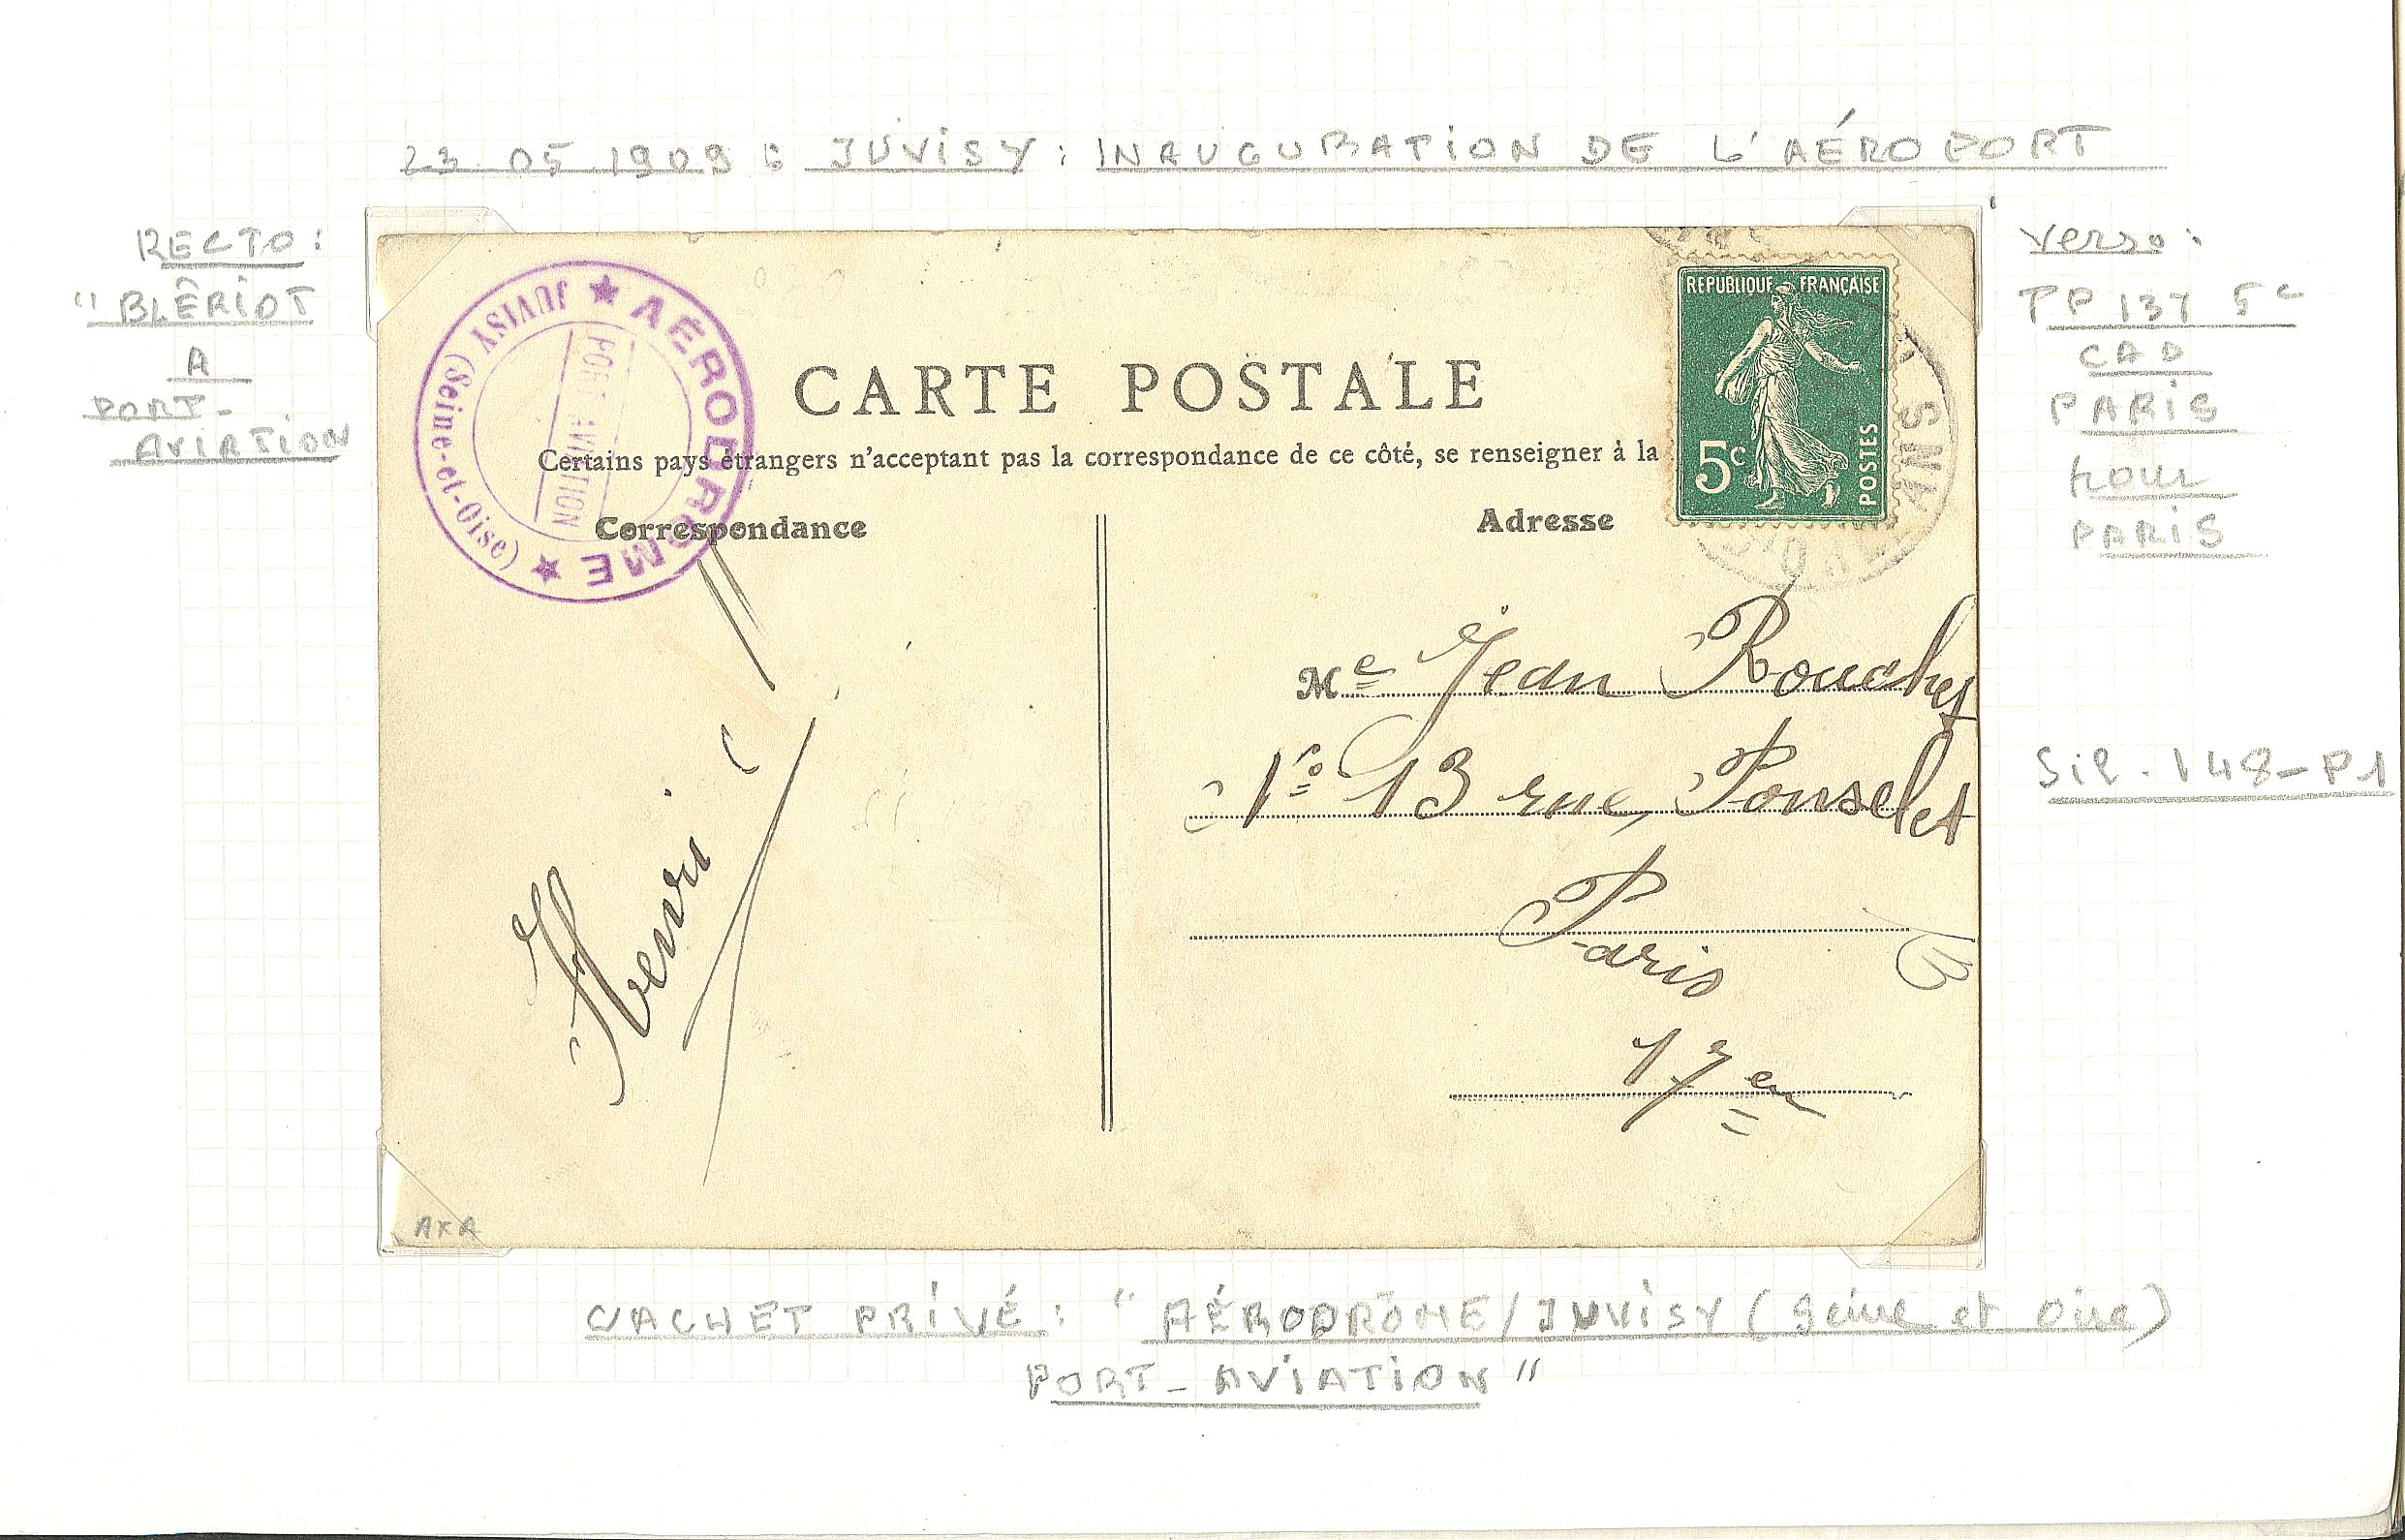 23 05 1909 : JUVISY : INAUGURATION DE L'AÉROPORT
RECTO :
"BLÉRIOT
A
PORT-
AVIATION
Verso :
TP 137 5c
CAD
PARIS
pour
PARIS
Sil. 148-P1
AÉRODROME
JUVISY (Seine-et-Oise)
PORT AVIATION
REPUBLIQUE FRANÇAISE
5c
POSTES
ORLEANS
CARTE POSTALE
Certains pays étrangers n'acceptant pas la correspondance de ce côté, se renseigner à la
Correspondance
Adresse
Me Jean Rouchy
13 rue, Ponselet
Paris
17e
Henri
AXA
CACHET PRIVÉ : "AÉRODRÔME/JUVISY (Seine et Oise)
PORT-AVIATION"